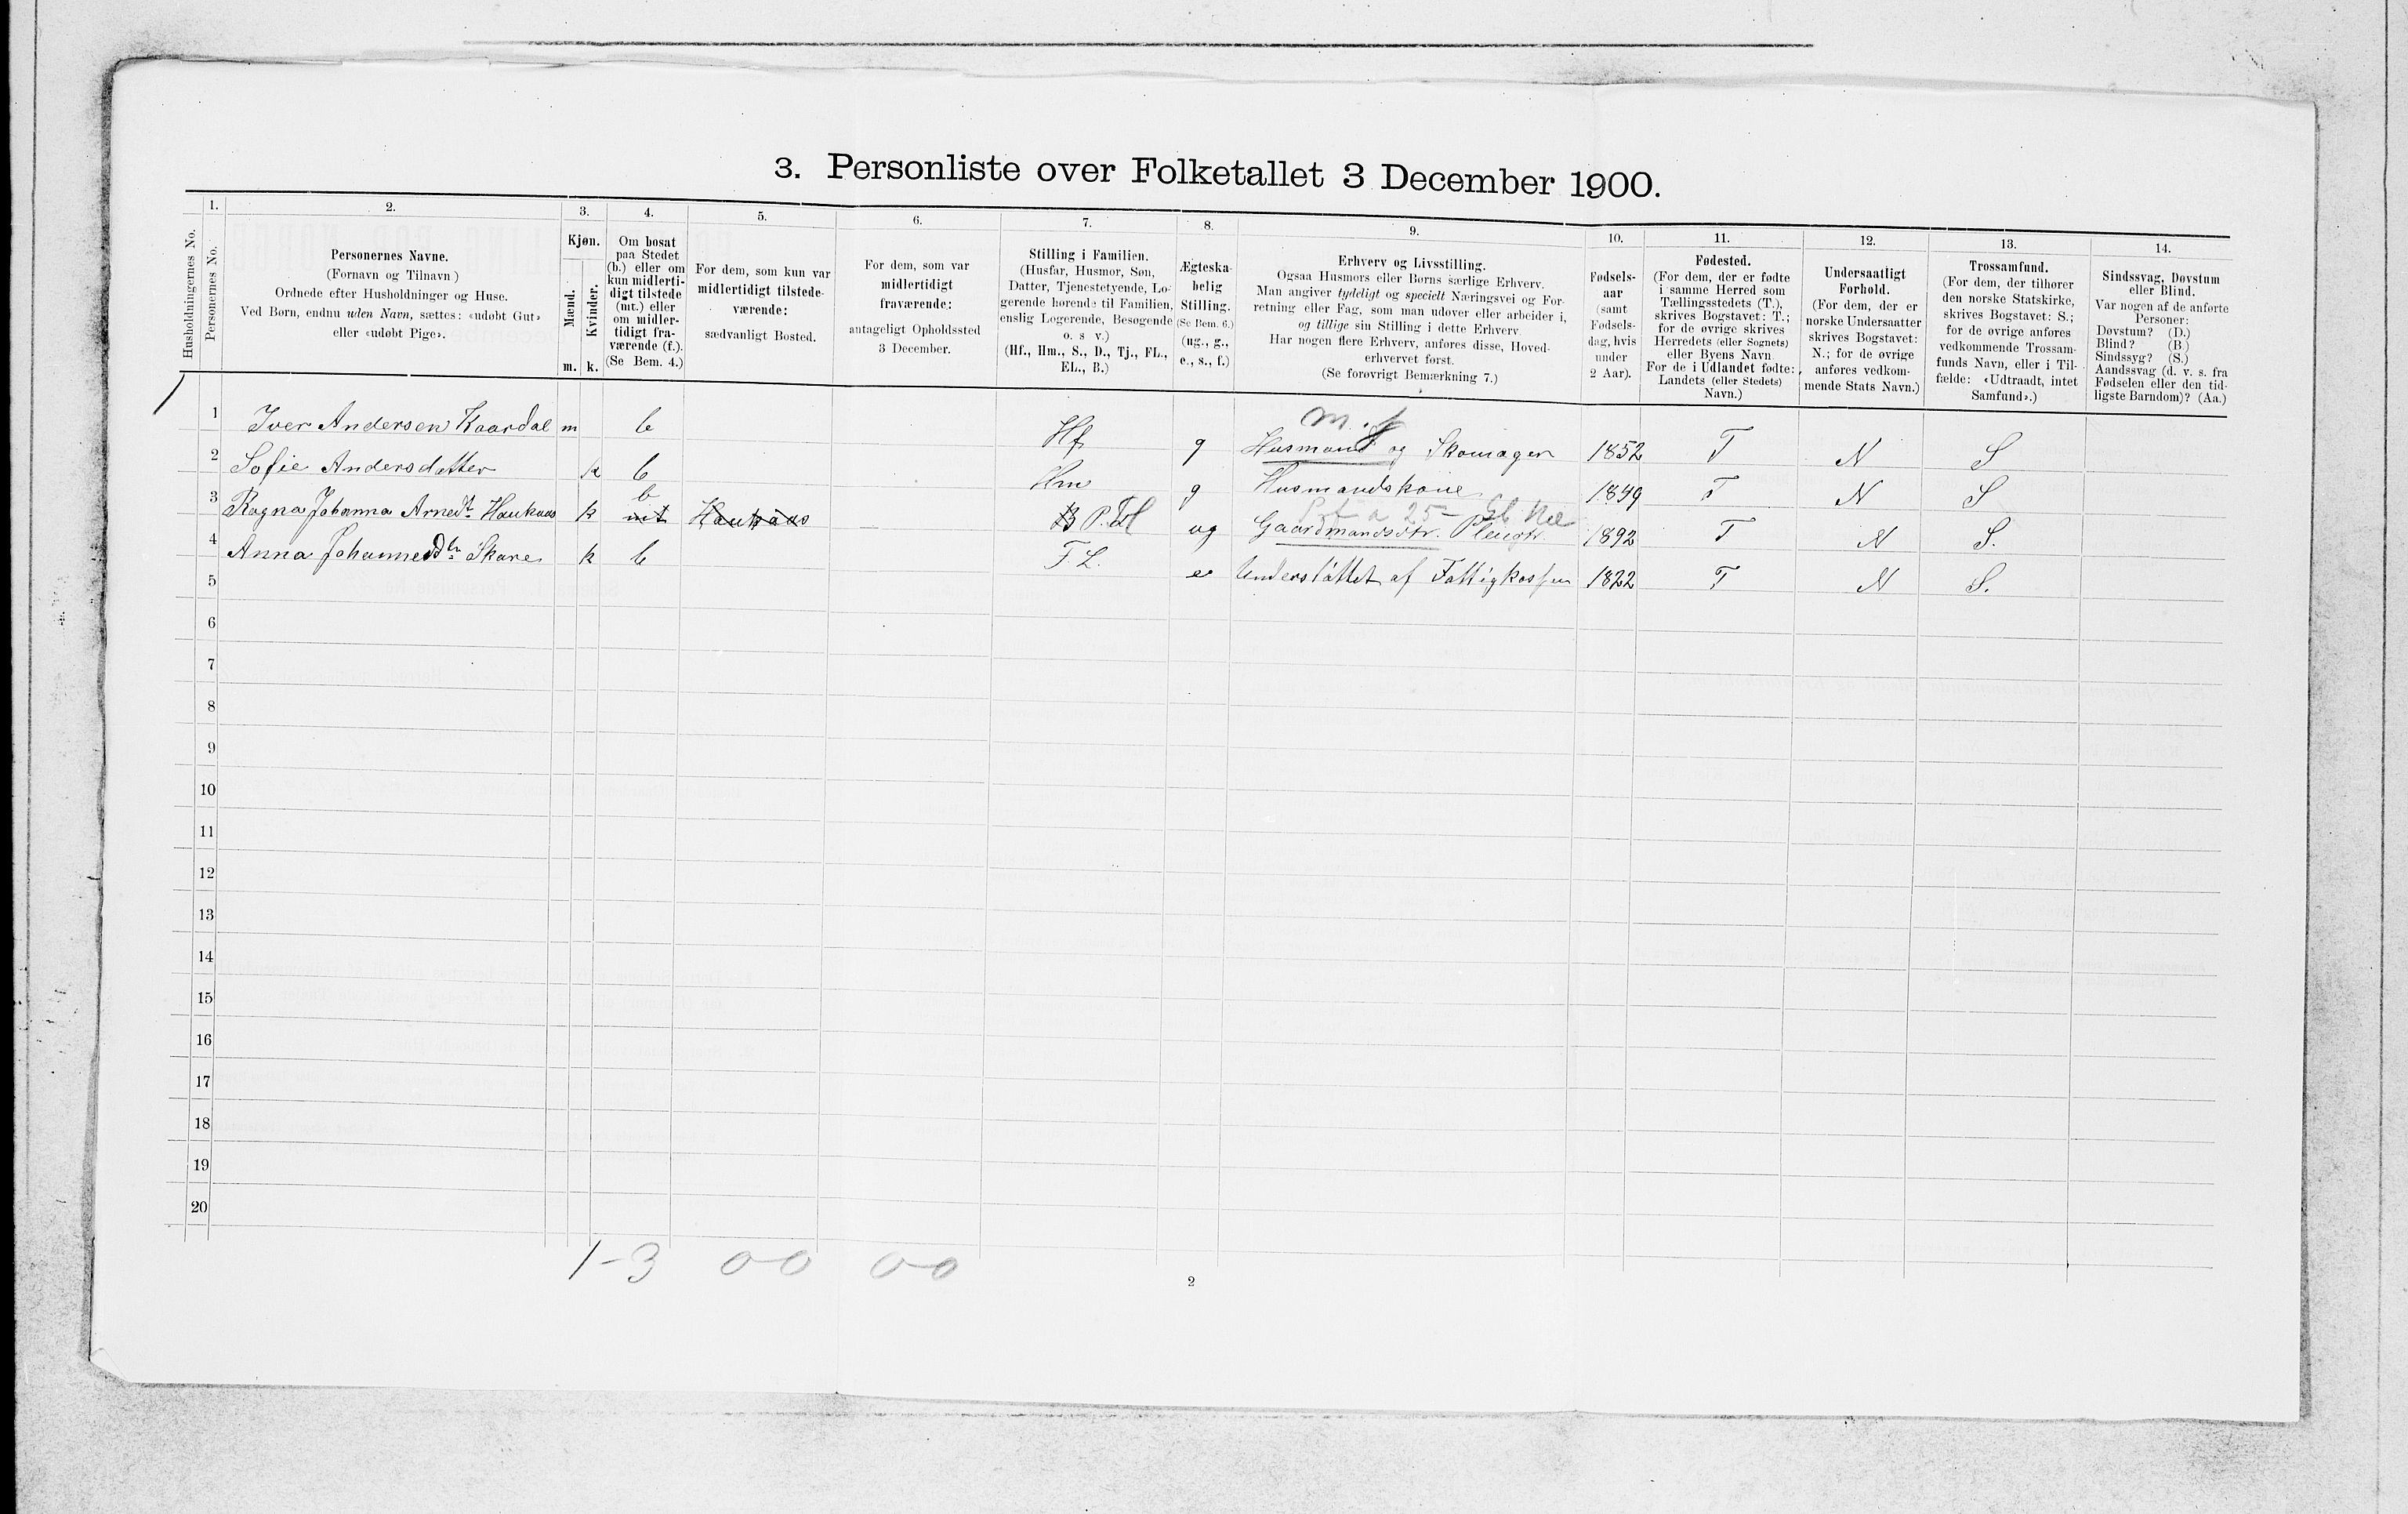 3. Personliste over Folketallet 3 December 1900.
1. 2. 3. 4. 5. 6. 7. 8. 9. 10. 11. 12. 13. 14.
Husholdningernes No.
Personernes No.
Personernes Navne.
(Fornavn og Tilnavn.)
Ordnede efter Husholdninger og Huse.
Ved Børn, endnu uden Navn, sættes: «udøbt Gut»
eller «udøbt Pige».
Kjøn.
Mænd.
Kvinder.
m. k.
Om bosat
paa Stedet
(b.) eller om
kun midlerti-
digt tilstede
(mt.) eller
om midler-
tidigt fra-
værende (f.).
(Se Bem. 4.)
For dem, som kun var
midlertidigt tilstede-
værende:
sædvanligt Bosted.
For dem, som var
midlertidigt
fraværende:
antageligt Opholdssted
3 December.
Stilling i Familien.
(Husfar, Husmor, Søn,
Datter, Tjenestetyende, Lo-
gerende hørende til Familien,
enslig Logerende, Besøgende
o. s. v.)
(Hf., Hm., S., D., Tj., FL.,
EL., B.)
Ægteska-
belig
Stilling.
(Se Bem. 6.)
(ug., g.,
e., s., f.)
Erhverv og Livsstilling.
Ogsaa Husmors eller Børns særlige Erhverv.
Man angiver tydeligt og specielt Næringsvei og For-
retning eller Fag, som man udøver eller arbeider i,
og tillige sin Stilling i dette Erhverv.
Har nogen flere Erhverv, anføres disse, Hoved-
erhvervet først.
(Se forøvrigt Bemærkning 7.)
Fødsels-
aar
(samt
Fødsels-
dag, hvis
under
2 Aar).
Fødested.
(For dem, der er fødte
i samme Herred som
Tællingsstedets (T.),
skrives Bogstavet: T.;
for de øvrige skrives
Herredets (eller Sognets)
eller Byens Navn.
For de i Udlandet fødte:
Landets (eller Stedets)
Navn.)
Undersaatligt
Forhold.
(For dem, der er
norske Undersaatter
skrives Bogstavet:
N.; for de øvrige
anføres vedkom-
mende Stats Navn.)
Trossamfund.
(For dem, der tilhører
den norske Statskirke,
skrives Bogstavet: S.;
for de øvrige anføres
vedkommende Trossam-
funds Navn, eller i Til-
fælde: «Udtraadt, intet
Samfund».)
Sindssvag, Døvstum
eller Blind.
Var nogen af de anførte
Personer:
Døvstum? (D.)
Blind? (B.)
Sindssyg? (S.)
Aandssvag (d. v. s. fra
Fødselen eller den tid-
ligste Barndom)? (Aa.)
m. f
1 Iver Andersen Kaardal m b Hf g Husmand og Skomager 1852 T N S
2 Sofie Andersdatter k b Hm g Husmandskone 1849 T N S
b
3 Ragna Johanna Arnedt. Haukaas k mt Haukaas B P. ug Gaardmandsdtr. 1892 T N S.
4 Anna Johannesdtr. Skare k b F. L. e Understøttet af Fattigkassen 1822 T N S.
5
6
7
8
9
10
11
12
13
14
15
16
17
18
19
20
1-3 0-0 0-0
2